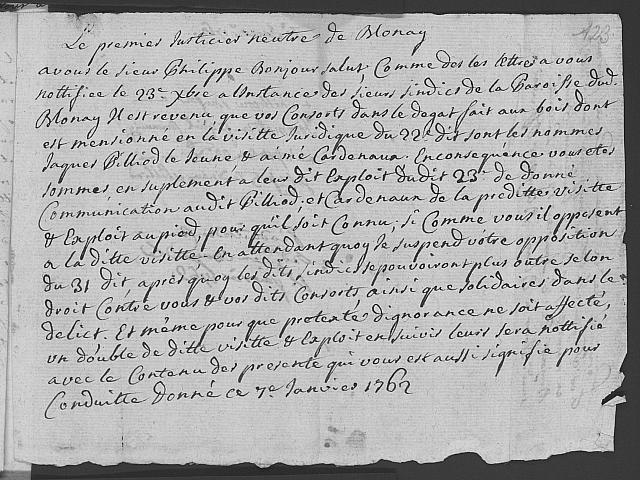 123
Le premier Justicier neutre de Blonay
a vous le sieur Philippe Bonjour, salut Comme des les lettres a vous
nottifiee le 23e xbre a linstance des sieurs sindics de la Paroisse dud.
Blonay Il est revenu que vos Consorts dans le degat fait aux bois dont
est mensionné en la visitte Juridique du 22e dit sont les nommes
Jaques Pilliod le Jeune & aimé Cardenaux. En conséquence vous etes
sommes en suplement a leur dit Exploit du dit 23e de donné
Communication audit Pilliod, et Cardenaux de la preditte visitte
& Exploit au piod, pour qu'il soit Connu, si Comme vous il opposent
a la ditte visitte. En attendant quoy se suspend vôtre opposition
du 31 dit, après quoy les dits sindics se pouvoiront plus outre selon
droit Contre vous & vos dits Consorts ainsi que solidaires dans le
delict. Et même pour que protexté dignorance ne soit affecté,
un double de ditte visitte & Exploit en suivis leurs sera nottifié
avec le Contenu des presente qui vous est aussi signifie pour
Conduitte Donné ce 7e Janvier 1762